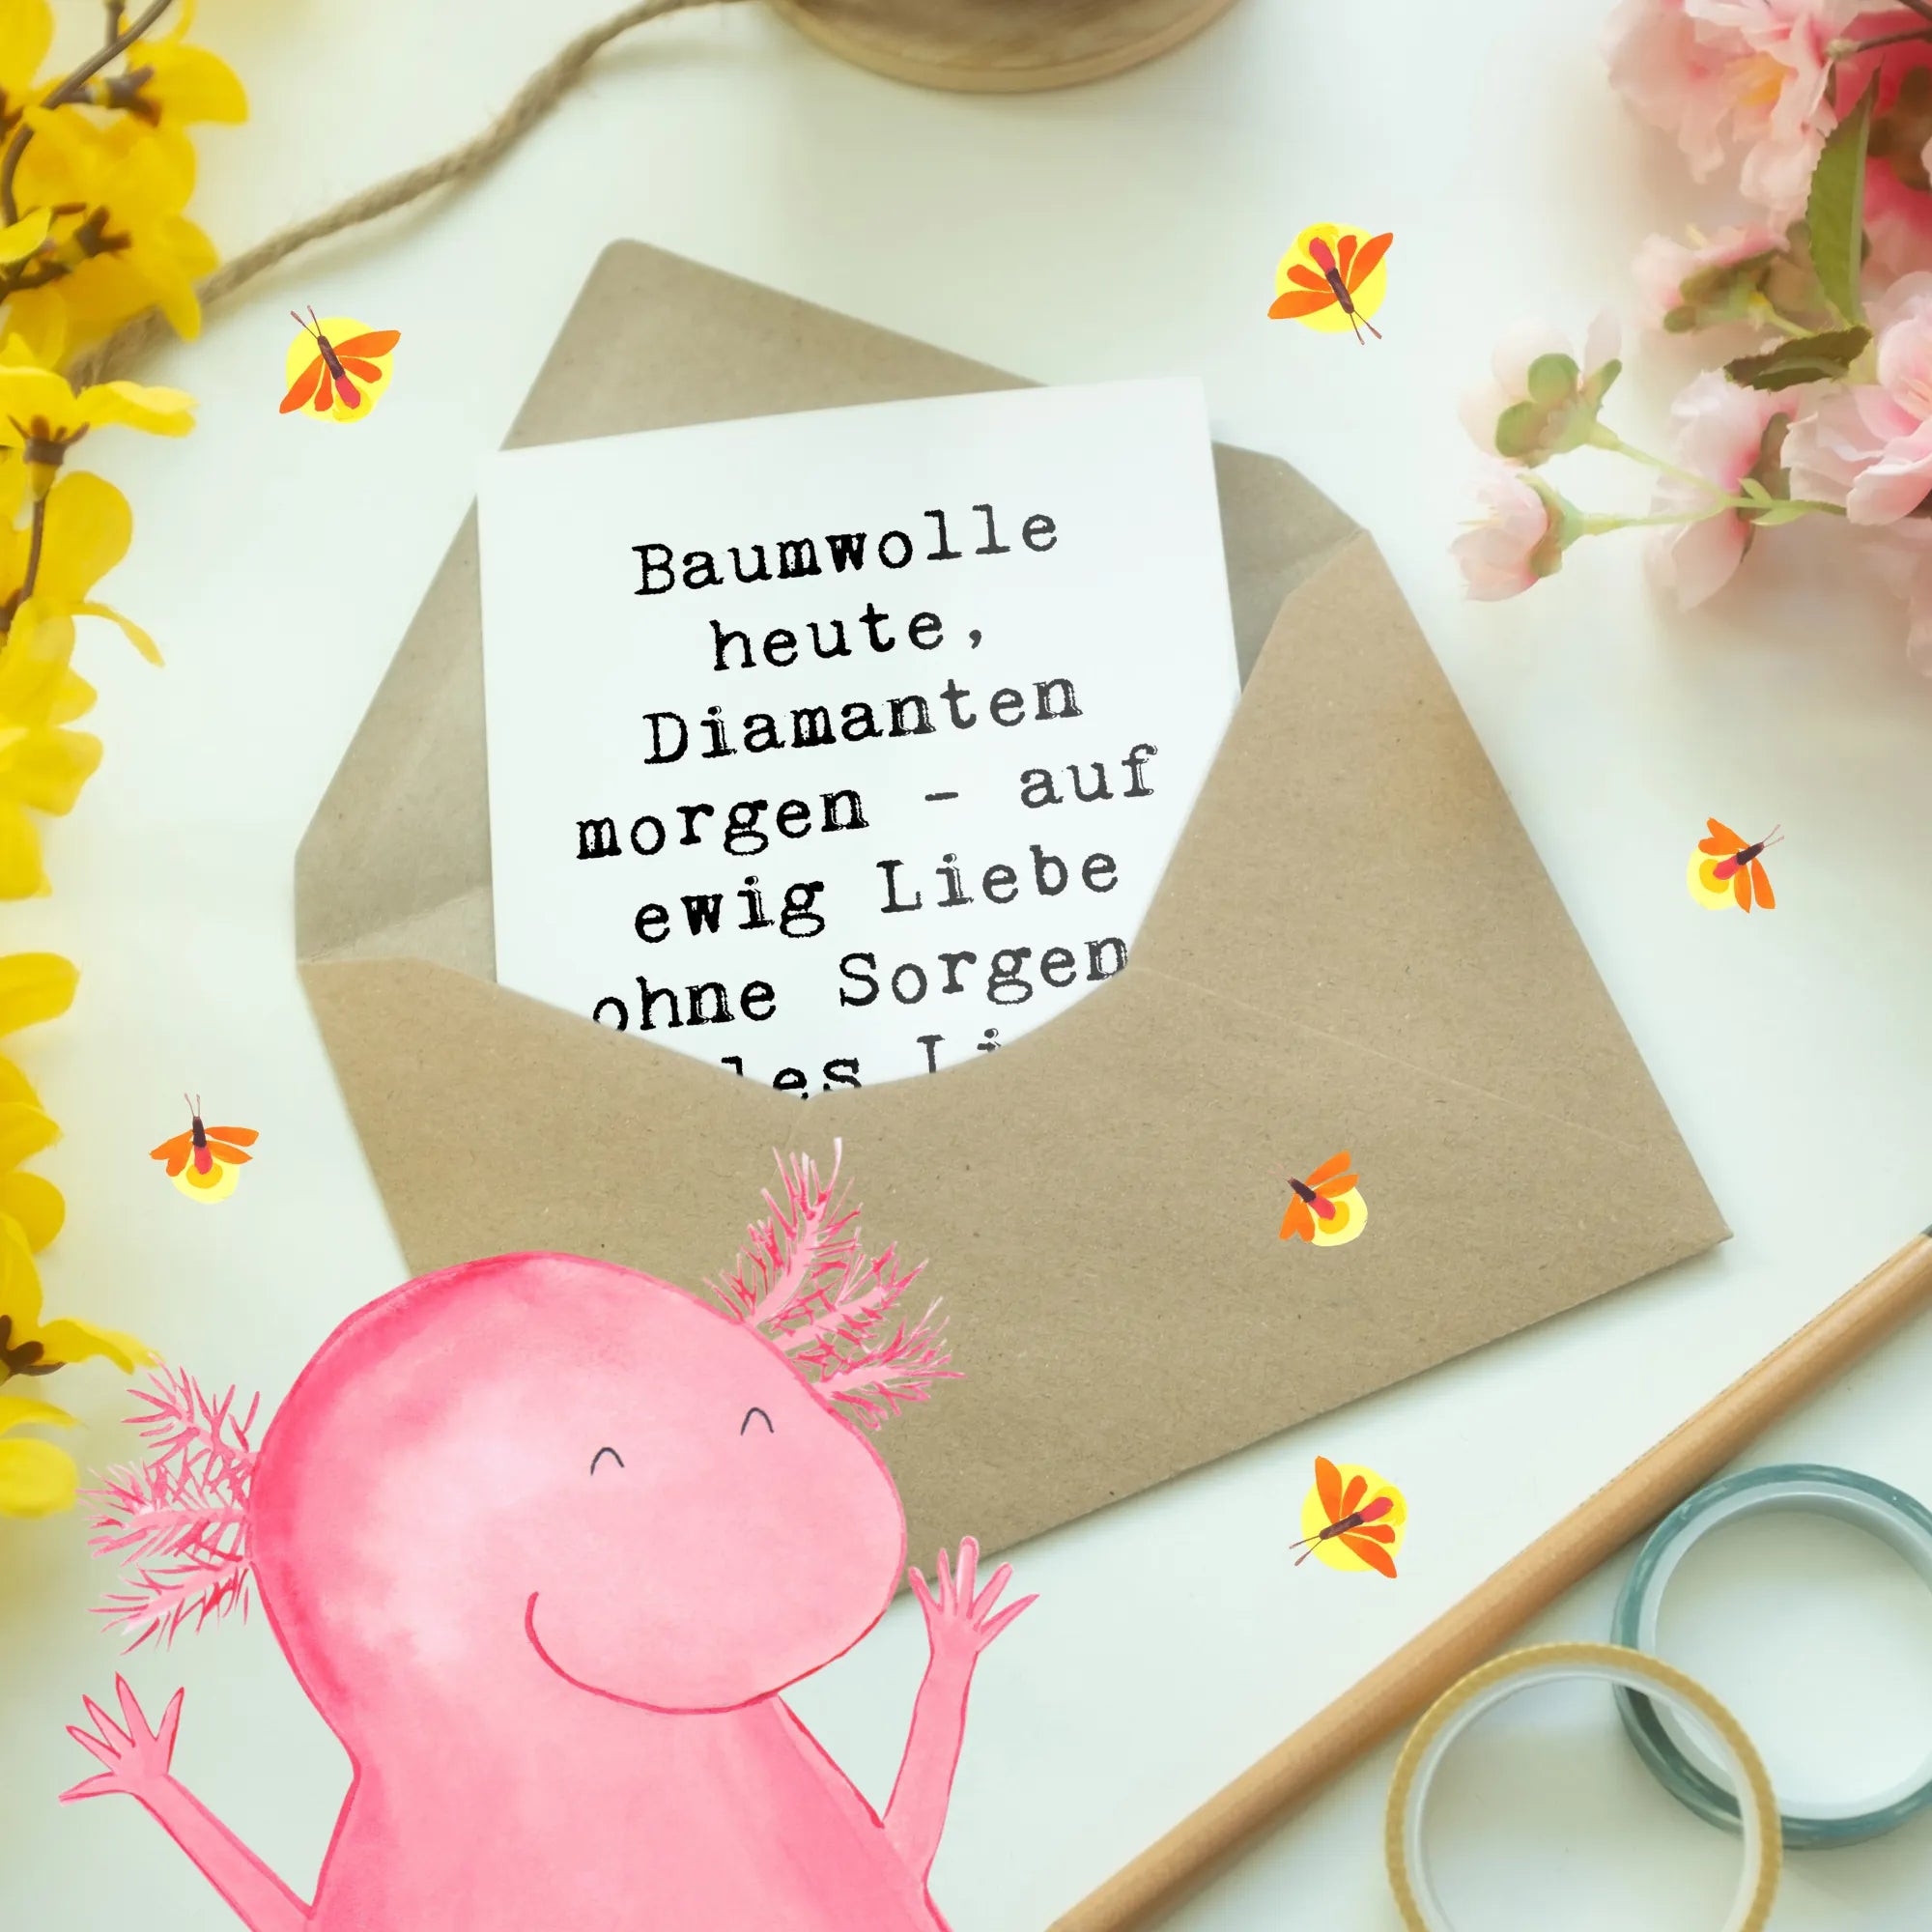 Baumwolle
heute,
Diamanten
morgen - auf
ewig Liebe
ohne Sorgen